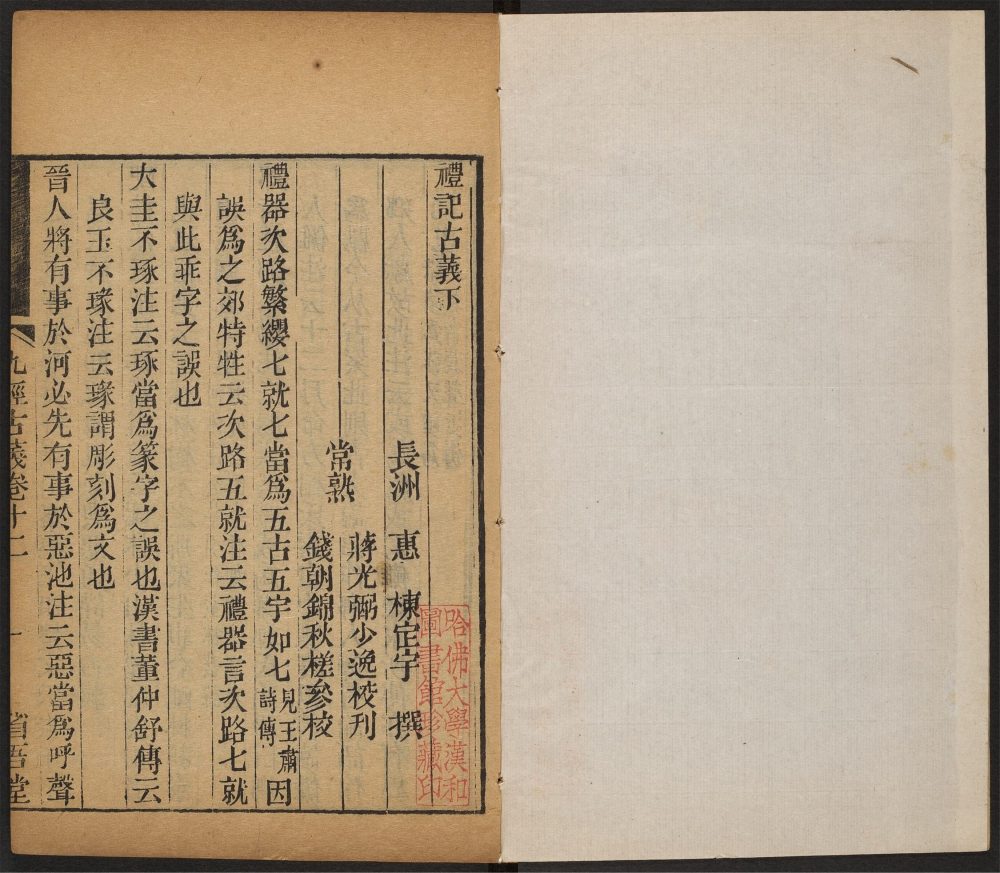 禮記古義下
長洲 惠 棟定宇 撰
常熟 蔣光弼少逸校刊
錢朝錦秋槎參校
禮器次路繁纓七就七當爲五古五字如七見王肅詩傳因
誤爲之郊特牲云次路五就注云禮器言次路七就
與此乖字之誤也
大圭不琢注云琢當爲篆字之誤也漢書董仲舒傳云
良玉不瑑注云瑑謂彫刻爲文也
晉人將有事於河必先有事於惡池注云惡當爲呼聲
九經古義卷十二 一 省吾堂
哈佛大學漢和
圖書館珍藏印